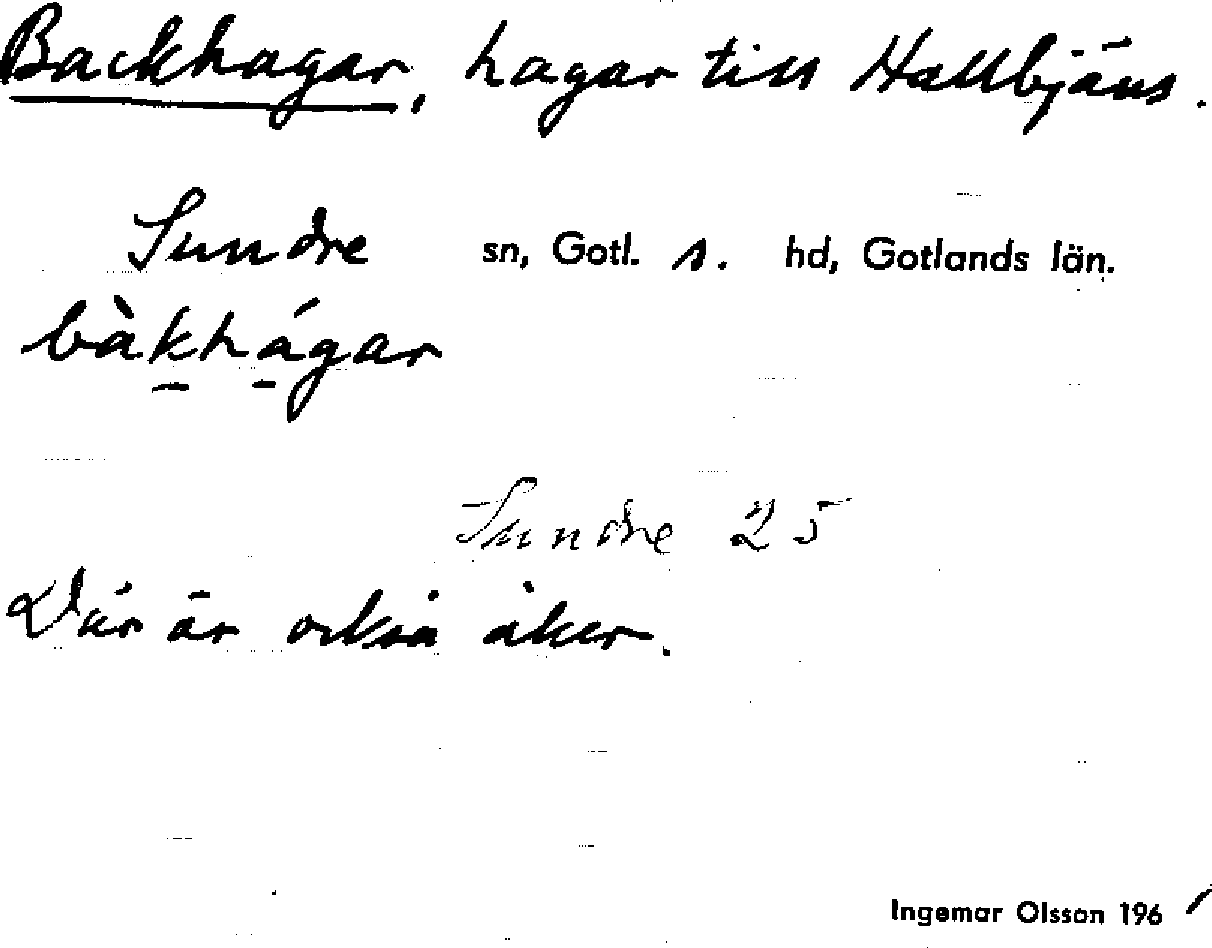 Backhagar, hagar till Hallbjäns.
Sundre sn, Gotl. s. hd, Gotlands län.
bàk̠há̠gar
Sundre 25
Där är också åker.
Ingemar Olsson 1961